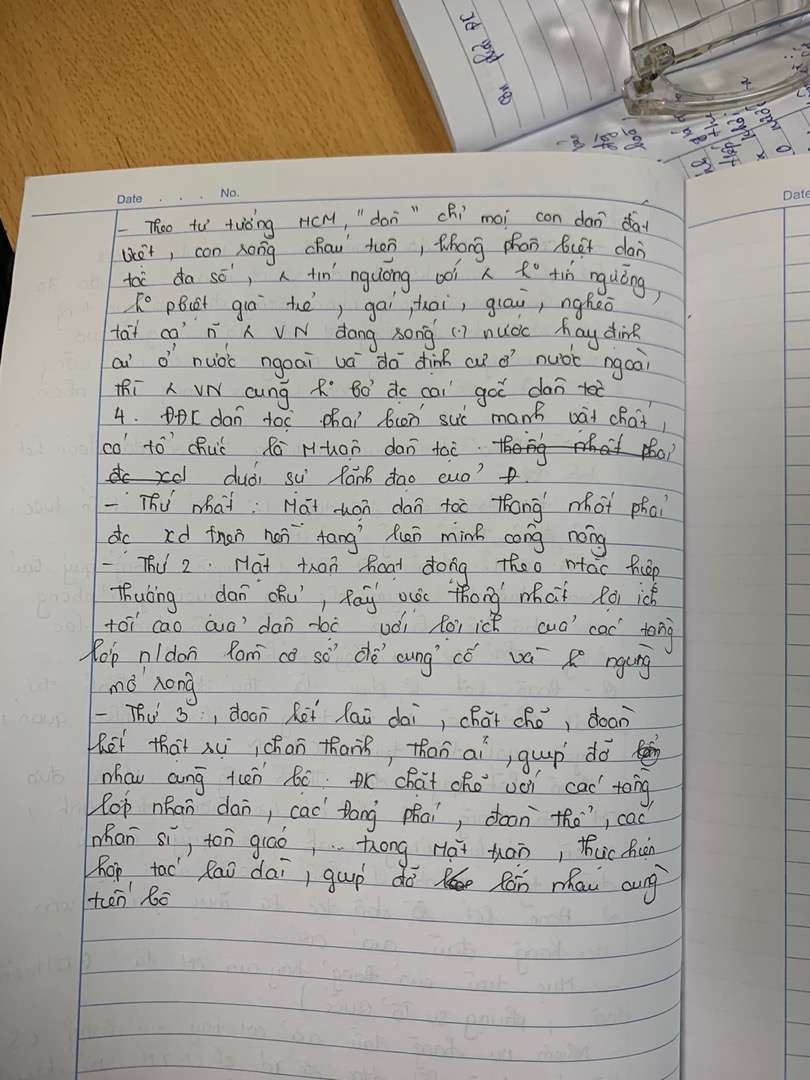 Date . . . No.
- Theo tư tưởng HCM, "dân" chỉ mọi con dân đất
việt, con rồng cháu tiên, không phân biệt dân
tộc đa số, tín ngưỡng với k° tín ngưỡng,
k° pbiệt già trẻ, gái, trai, giàu, nghèo
tất cả n VN đang sống (.) nước hay định
cư ở nước ngoài và đã định cư ở nước ngoài
thì VN cũng k° bỏ đc cái gốc dân tộc
4. ĐĐK dân tộc phải biến sức mạnh vật chất,
có tổ chức là M-trận dân tộc . thống nhất phải
đc xd dưới sự lãnh đạo của Đ.
- Thứ nhất : Mặt trận dân tộc thống nhất phải
đc xd trên nền tảng liên minh công nông
- Thứ 2 : Mặt trận hoạt động theo ntắc hiệp
thương dân chủ, lấy việc thống nhất lợi ích
tối cao của dân tộc với lợi ích của các tầng
lớp n/dân làm cơ sở để củng cố và k° ngừng
mở rộng
- Thứ 3 : , đoàn kết lâu dài, chặt chẽ, đoàn
kết thật sự, chân thành, thân ái, giúp đỡ
nhau cùng tiến bộ. ĐK chặt chẽ với các tầng
lớp nhân dân, các Đảng phái, đoàn thể, các
nhân sĩ, tôn giáo, ... trong Mặt trận, thực hiện
hợp tác lâu dài, giúp đỡ lẫn nhau cùng
tiến bộ
Date